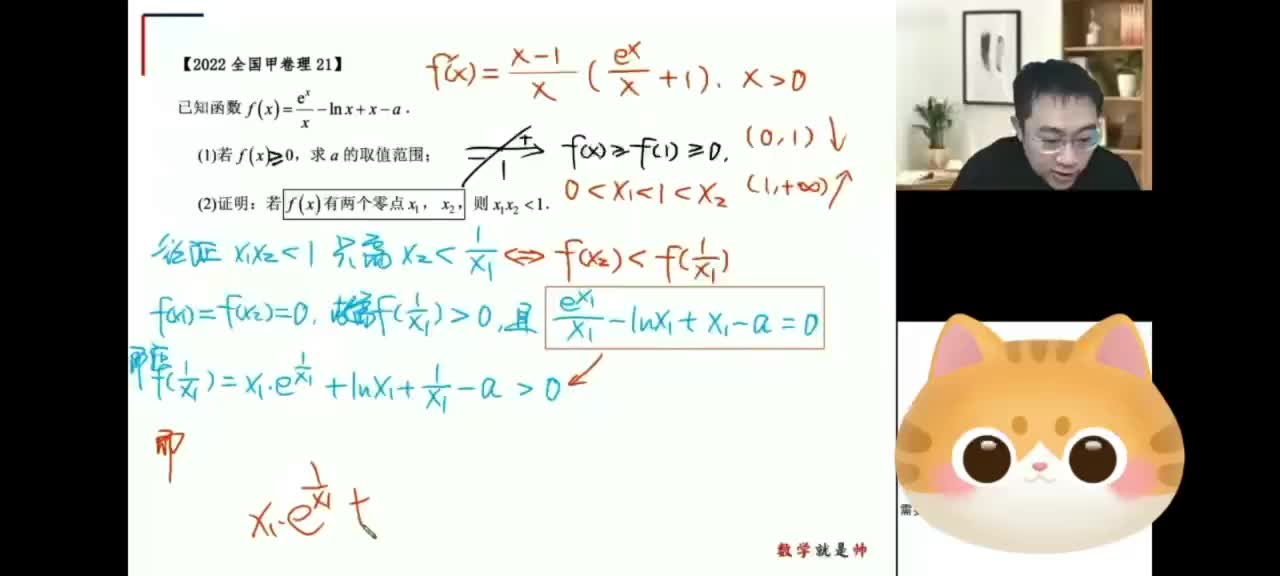 【2022 全国甲卷理 21】
已知函数 f(x)=e^x/x-lnx+x-a.
(1)若 f(x)≥0,求 a 的取值范围;
(2)证明:若 f(x)有两个零点 x₁,x₂,则 x₁x₂<1.
f'(x)=(x-1)/x(e^x/x+1). x>0
+
1
f(x)≥f(1)≥0,
(0,1)↓
0<x₁<1<x₂
(1,+∞)↑
x₁x₂<1 只需 x₂<1/x₁⇔f(x₂)<f(1/x₁)
f(x₁)=f(x₂)=0, f(1/x₁)>0,且 e^x₁/x₁-lnx₁+x₁-a=0
f(1/x₁)=x₁·e^(1/x₁)+lnx₁+1/x₁-a>0
即
x₁·e^(1/x₁) t
数学就是帅
需